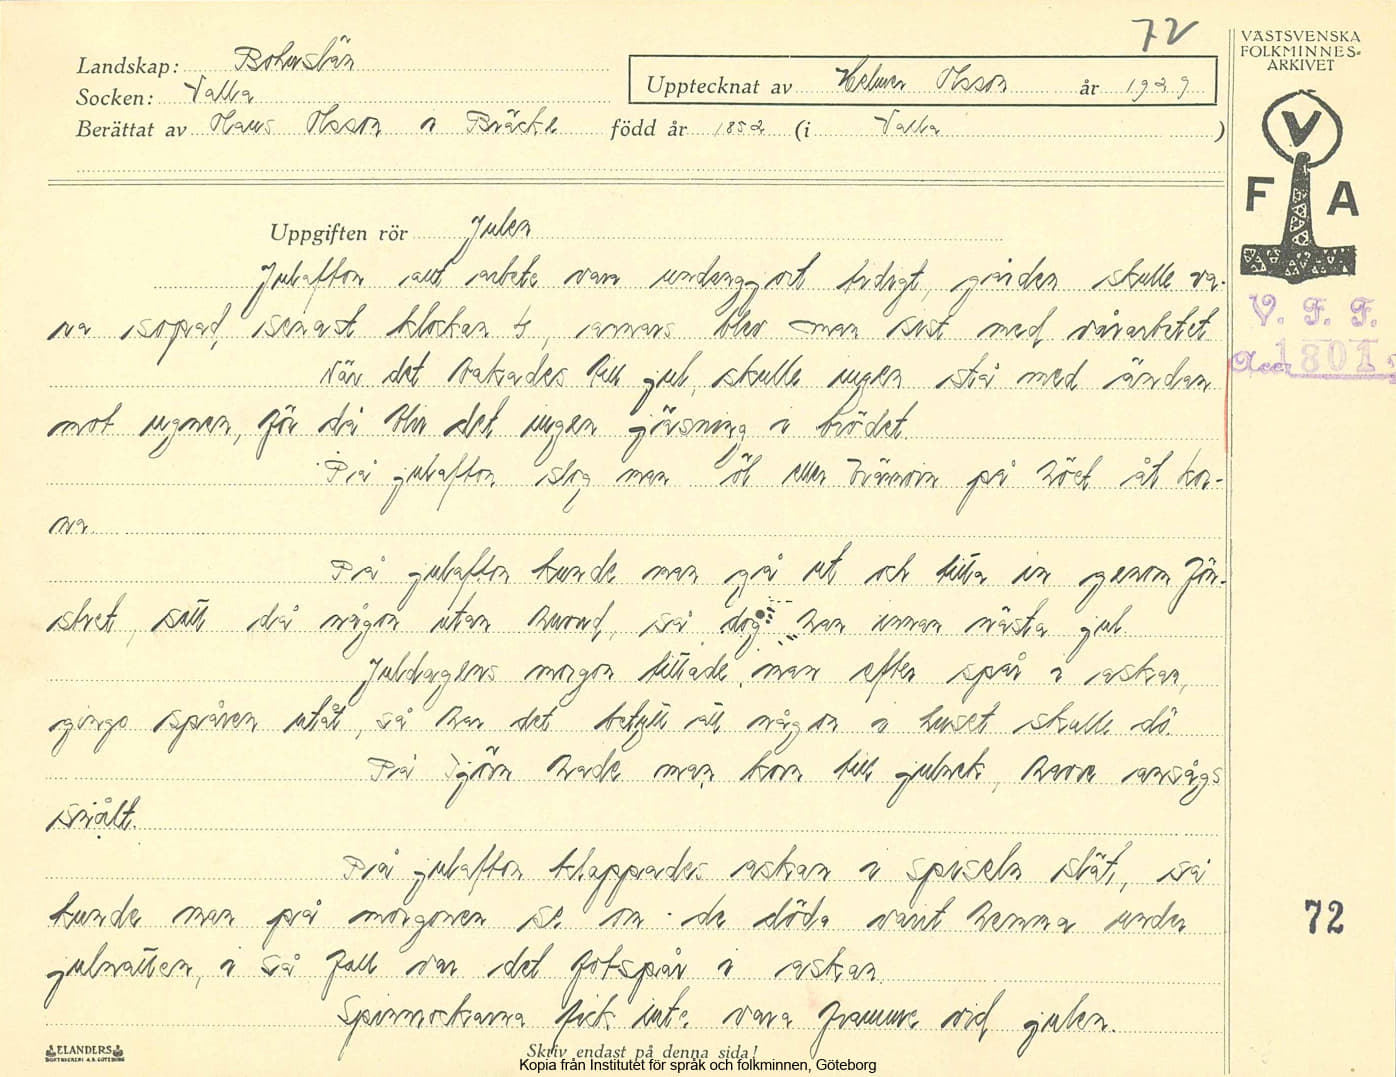 72
Landskap: Bohuslän
Socken: Valla
Upptecknat av Helmer Olsson år 1929
Berättat av Hans Olsson i Bräcke född år 1852 (i Valla )
VÄSTSVENSKA
FOLKMINNES-
ARKIVET
V
F A
V. F. F.
Acc. 1801
Uppgiften rör Julen
Julafton allt arbete vara undangjort tidigt, gården skulle va-
ra sopad, senast klockan 4, annars blev man sist med vårarbetet
När det bakades till jul, skulle ingen stå med ändan
mot ugnen, för då blir det ingen jäsning i brödet.
På julafton slog man öl eller brännvin på höet åt kor-
na.
På julafton kunde man gå ut och titta in genom fön-
stret, satt då någon utan huvud, så dog han innan nästa jul.
Juldagens morgon tittade man efter spår i askan,
gingo spåren utåt, så har det betytt att någon i huset skulle dö.
På Tjörn hade man korn till julnek, havre ansågs
snålt.
På julafton klappades askan i spiseln slät, så
kunde man på morgonen se om de döda varit hemma under
julnatten, i så fall var det fotspår i askan.
72
Spinnrockarna fick inte vara framme vid julen.
ELANDERS
BOKTRYCKERI A.B. GÖTEBORG
Skriv endast på denna sida!
Kopia från Institutet för språk och folkminnen, Göteborg